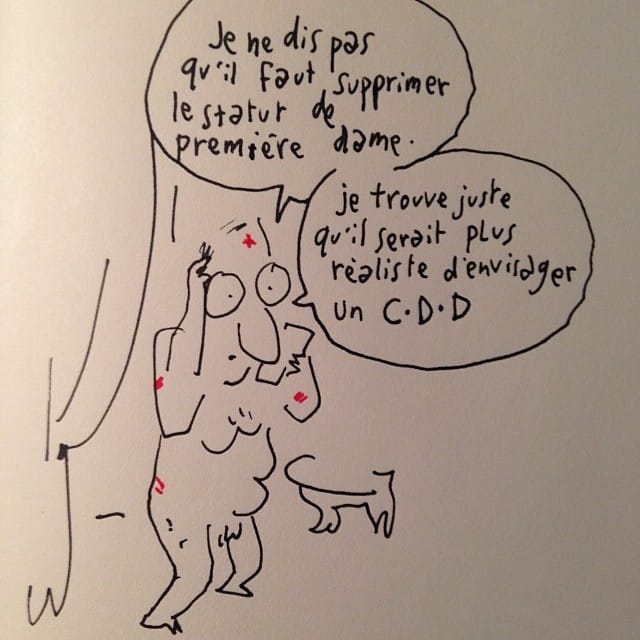 Je ne dis pas
qu'il faut supprimer
le statut de
première dame.
je trouve juste
qu'il serait plus
réaliste d'envisager
un C.D.D